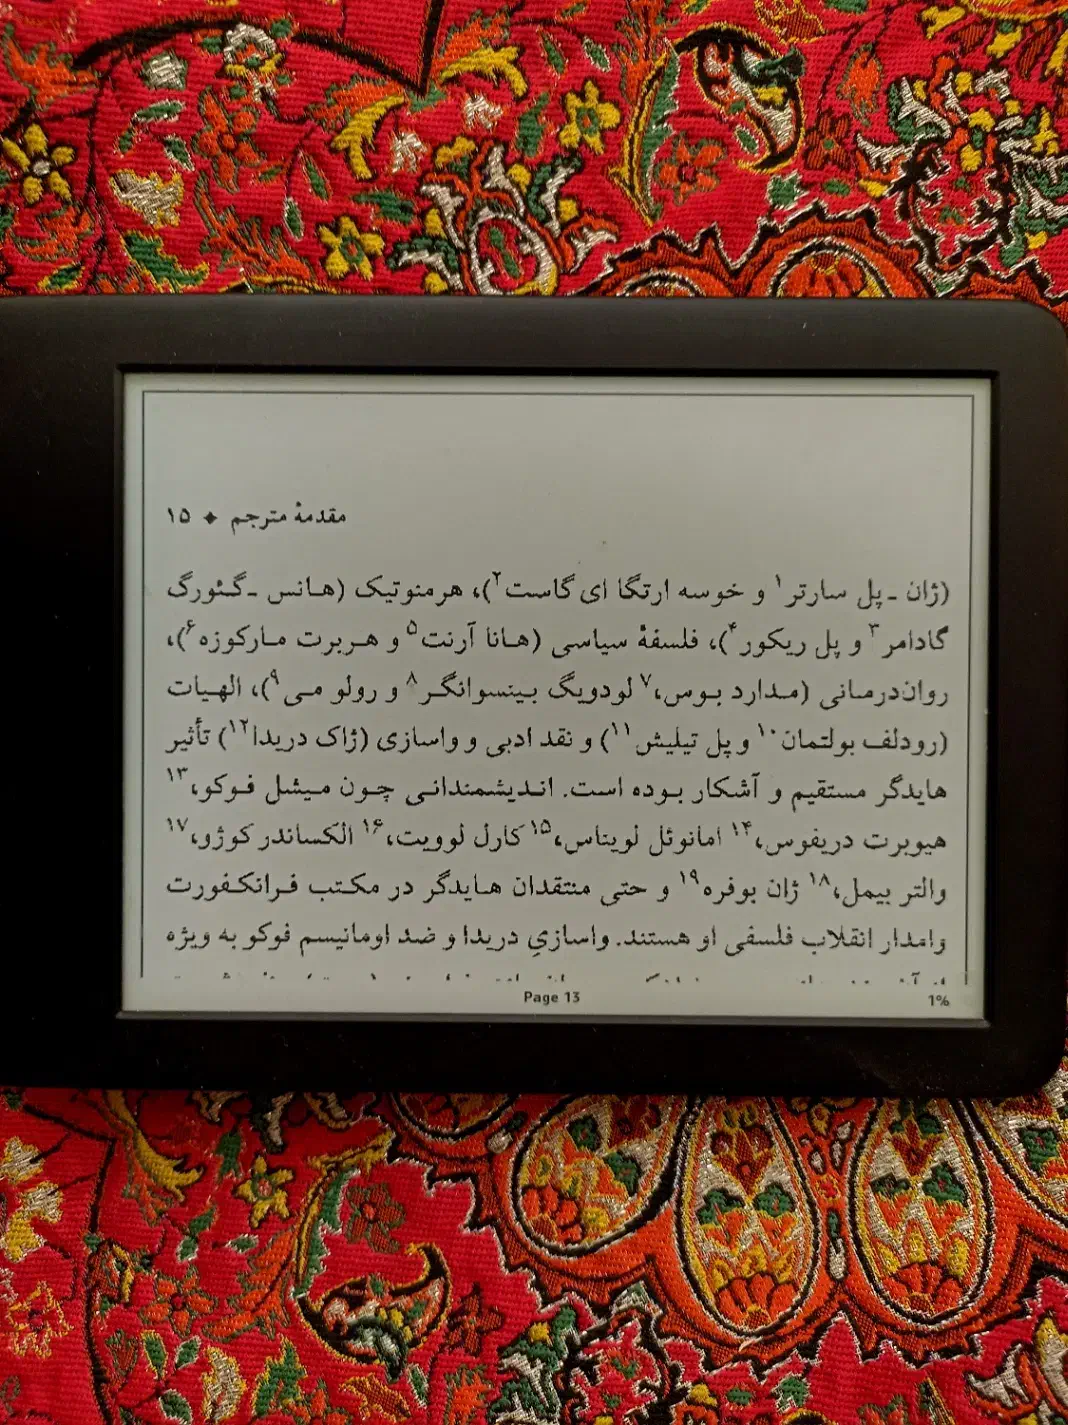 مقدمهٔ مترجم ◆ ۱۵
(ژان ـ پل سارتر۱ و خوسه ارتگا ای گاست۲)، هرمنوتیک (هانس ـ گئورگ
گادامر۳ و پل ریکور۴)، فلسفهٔ سیاسی (هانا آرنت۵ و هربرت مارکوزه۶)،
روان‌درمانی (مدارد بوس،۷ لودویگ بینسوانگر۸ و رولو می۹)، الهیات
(رودلف بولتمان۱۰ و پل تیلیش۱۱) و نقد ادبی و واسازی (ژاک دریدا۱۲) تأثیر
هایدگر مستقیم و آشکار بوده است. اندیشمندانی چون میشل فوکو،۱۳
هیوبرت دریفوس،۱۴ امانوئل لویناس،۱۵ کارل لوویت،۱۶ الکساندر کوژو،۱۷
والتر بیمل،۱۸ ژان بوفره۱۹ و حتی منتقدان هایدگر در مکتب فرانکفورت
وامدار انقلاب فلسفی او هستند. واسازیِ دریدا و ضد اومانیسم فوکو به ویژه
Page 13
1%